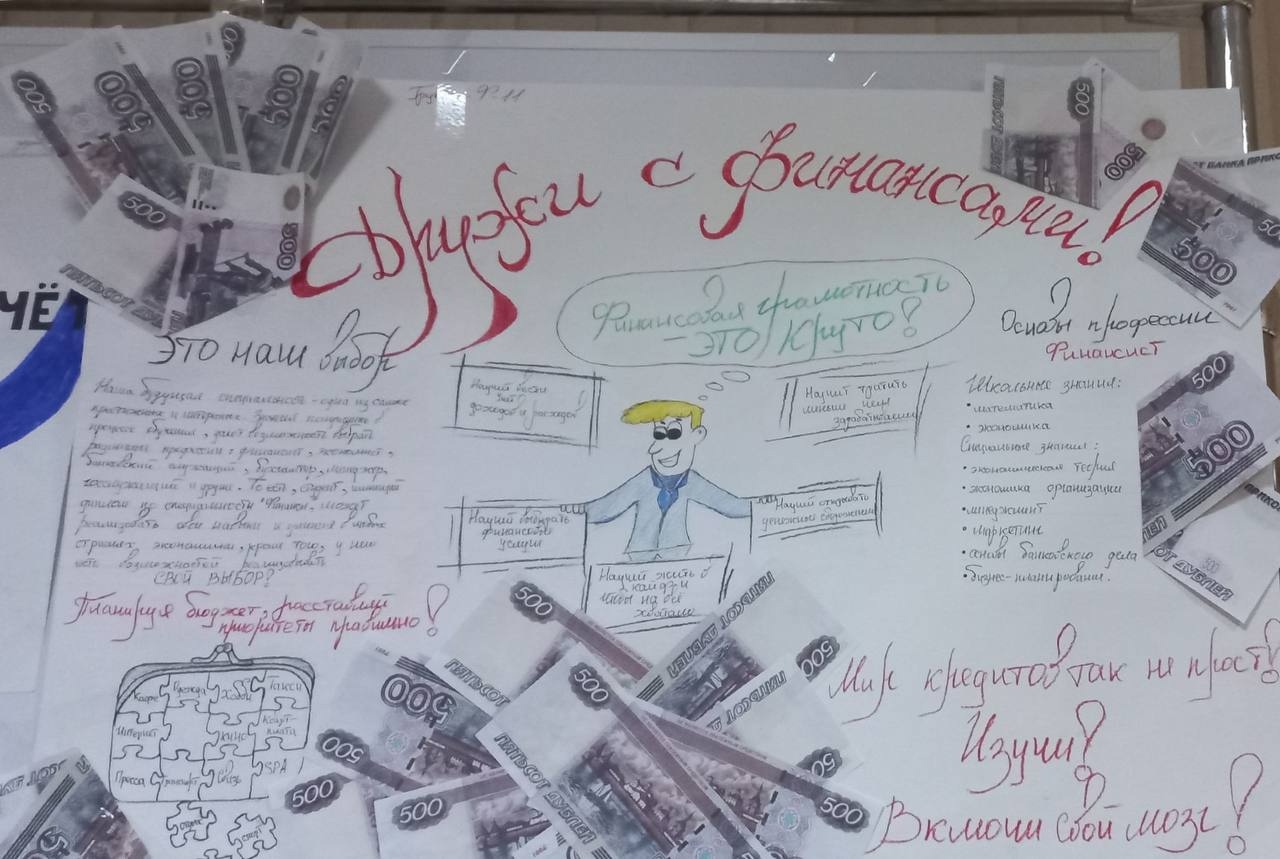 Дружи с финансами!
Финансовая грамотность
- ЭТО КРУТО!
ЧЁ
ЭТО наш выбор
Наша будущая специальность - одна из самых
престижных и интересных. Знания полученные в
процессе обучения, дают возможность выбрать
различные профессии: финансист, экономист,
банковский служащий, бухгалтер, менеджер,
госслужащий и другие. То есть, студент, имеющий
диплом по специальности "Финансы", сможет
реализовать свои навыки и умения в любых
отраслях экономики, кроме того, у него
есть возможность реализовать
СВОЙ ВЫБОР?
Планируя бюджет, расставляй
приоритеты правильно!
Кафе
Одежда
Хобби
Такси
Интернет
Кино
Комм-
платы
Пресса
Транспорт
Связь
SPA
Научит вести
учёт
доходов и расходов
Научит тратить
меньше чем
зарабатываешь
Научит выбирать
финансовые
услуги
Научит открывать
денежные сбережения
Научит жить в
кайф и
чтобы на всё
хватало
Основы профессии
Финансист
Школьные знания:
• математика
• экономика
Специальные знания:
• экономическая теория
• экономика организации
• менеджмент
• маркетинг
• основы банковского дела
• бизнес-планирование.
Мир кредитов так не прост!
Изучи!
Включи свой мозг!
500
500
500
500
500
500
500
ПЯТЬСОТ РУБЛЕЙ
500
500
500
500
500
500
500
ПЯТЬСОТ РУБЛЕЙ
500
500
500
500
ПЯТЬСОТ РУБЛЕЙ
500
500
500